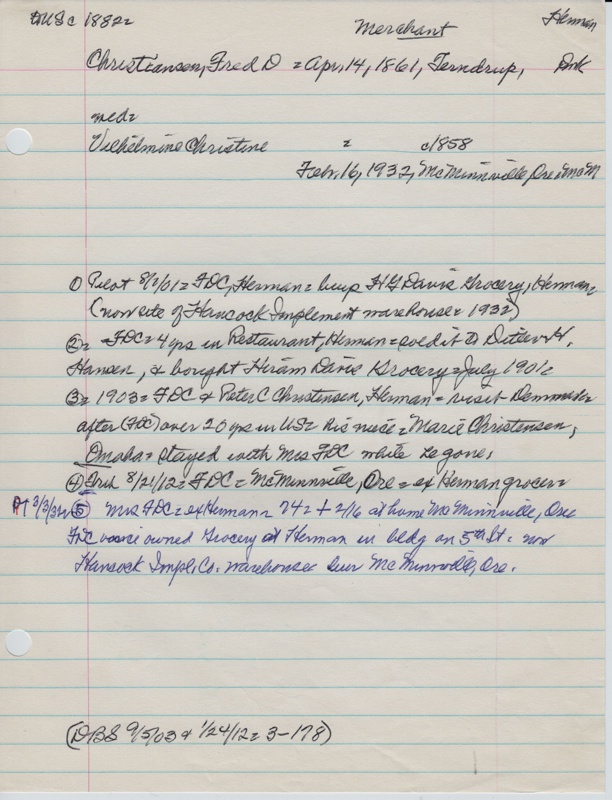 imUSc 1882= Merchant Herman
Christiansen, Fred D = Apr, 14, 1861, Terndrup, Dmk
med=
Vilhelmine Christine = c1858
Feb. 16, 1932, McMinnville, Ore = McM
1) Pilot 8/2/01= FDC, Herman= buys HG Davis Grocery, Herman=
(now site of Hancock Implement warehouse= 1932)
2)= FDC=4 yrs in Restaurant, Herman=sold it to Detlev H.
Hansen, & bought Hiram Davis Grocery=July 1901=
3)= 1903= FDC & Peter C Christensen, Herman= visit Denmark
after (FDC) over 20 yrs in US= his niece= Marie Christensen,
Omaha= stayed with Mrs FDC while he gone,
4) 8/21/12= FDC= McMinnville, Ore= ex Herman grocer=
PT 3/3/32= 5) Mrs FDC= ex Herman= 74= + 2/16 at home McMinnville, Ore
FDC once owned Grocery at Herman in bldg on 5th St= now
Hancock Impl. Co. warehouse= bur McMinnville, Ore.
(DBS 9/5/03 & 1/24/12= 3-178)